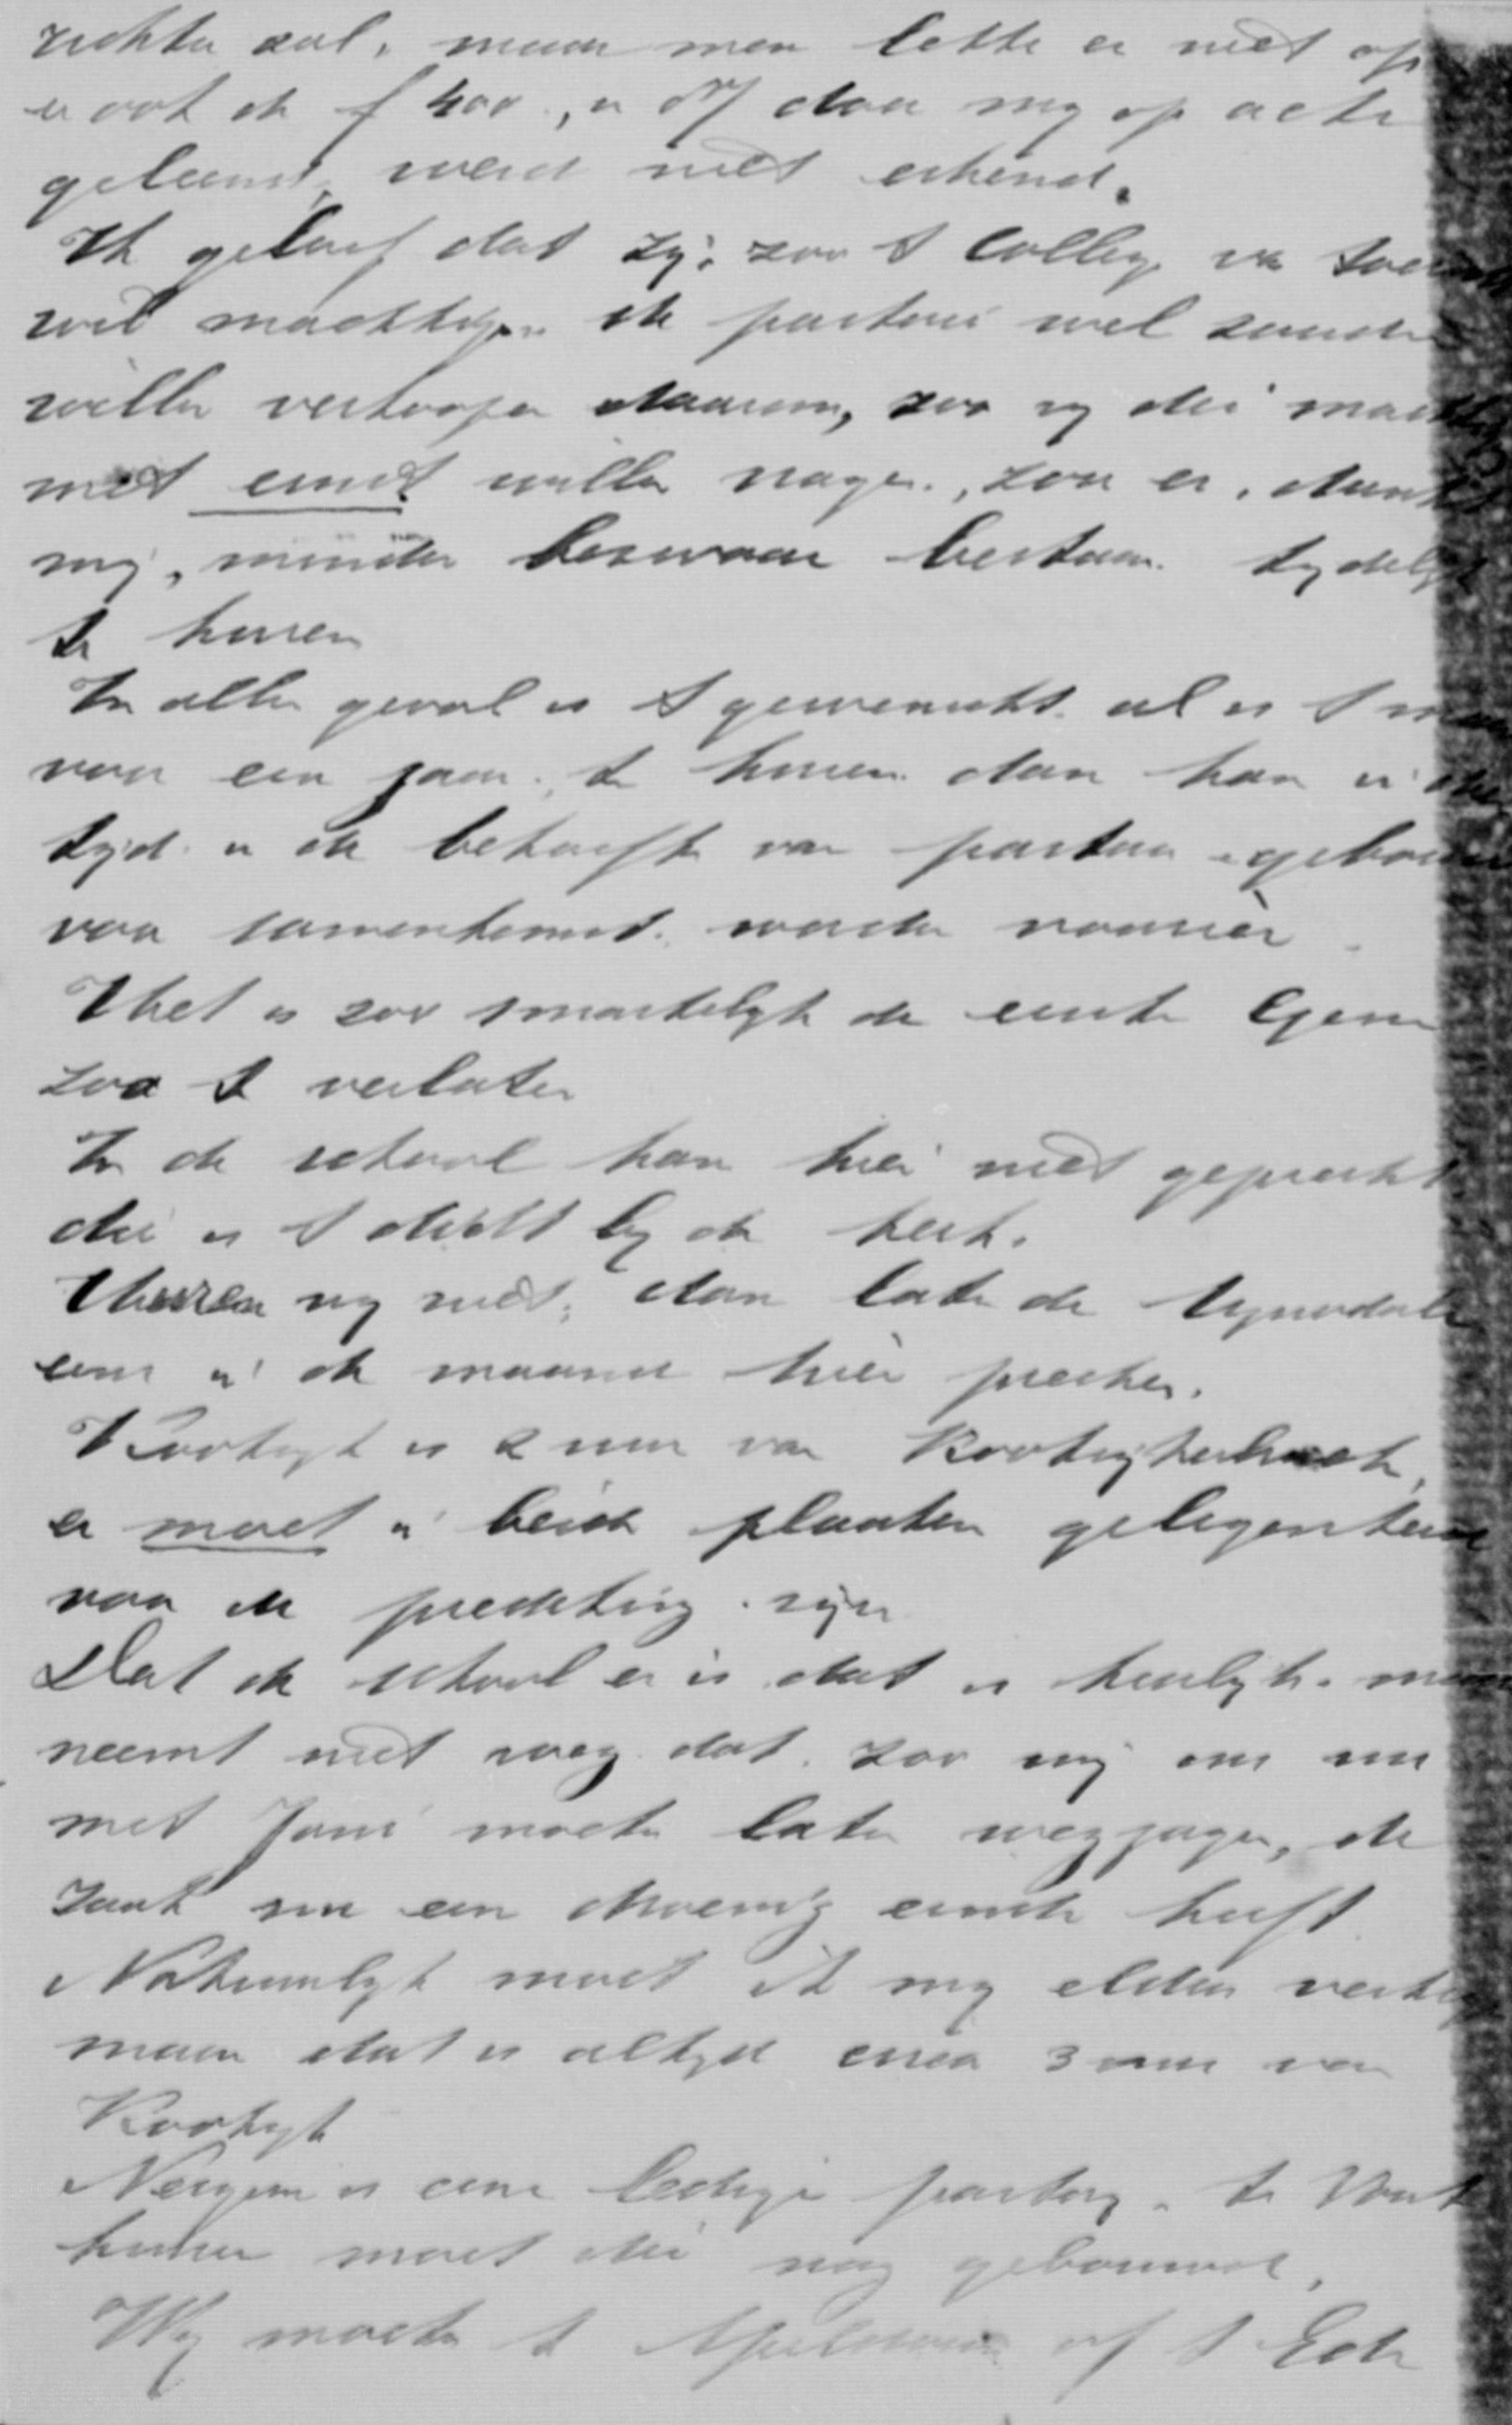 richten zal, maar men lette er niet op
en ook de f 400, door mij op acte
geleend, werd niet erkend.
Ik geloof dat zij, zoo 't College van
wil machtigen de pastorie wel zouden
willen verkoopen daarom, zoo wij die
niet eerst willen vragen, zou er, dunkt
mij, minder bezwaar bestaan tydelyk
te huren
In alle geval is 't gewenscht al is 't
voor een jaar te huren dan kan in
tijd in de behoefte van pastorie en
voor samenkomst worden voorzien
Het is zoo smartelyk de eerste
zoo te verlaten
In de school kan hier niet gepreekt
die is te dicht by de kerk.
Huren wij niet, dan laten de Synodale
eens in de maand hier preeken.
Kootwyk is 2 uur van Kootwijkerbroek,
er moet in beide plaatsen gelegenheid
voor de prediking zijn
Dat de school er is dat is heerlyk
neemt niet weg dat zoo wij ons nu
met Juni moeten laten wegjagen, de
zaak een droevig einde heeft
Natuurlyk moet ik mij elders
maar dat is altyd circa 3 uur van
Kootwyk
Nergens is eene ledige pastory, te
moet die nog gebouwd,
Wij moeten te Apeldoorn of te Ede